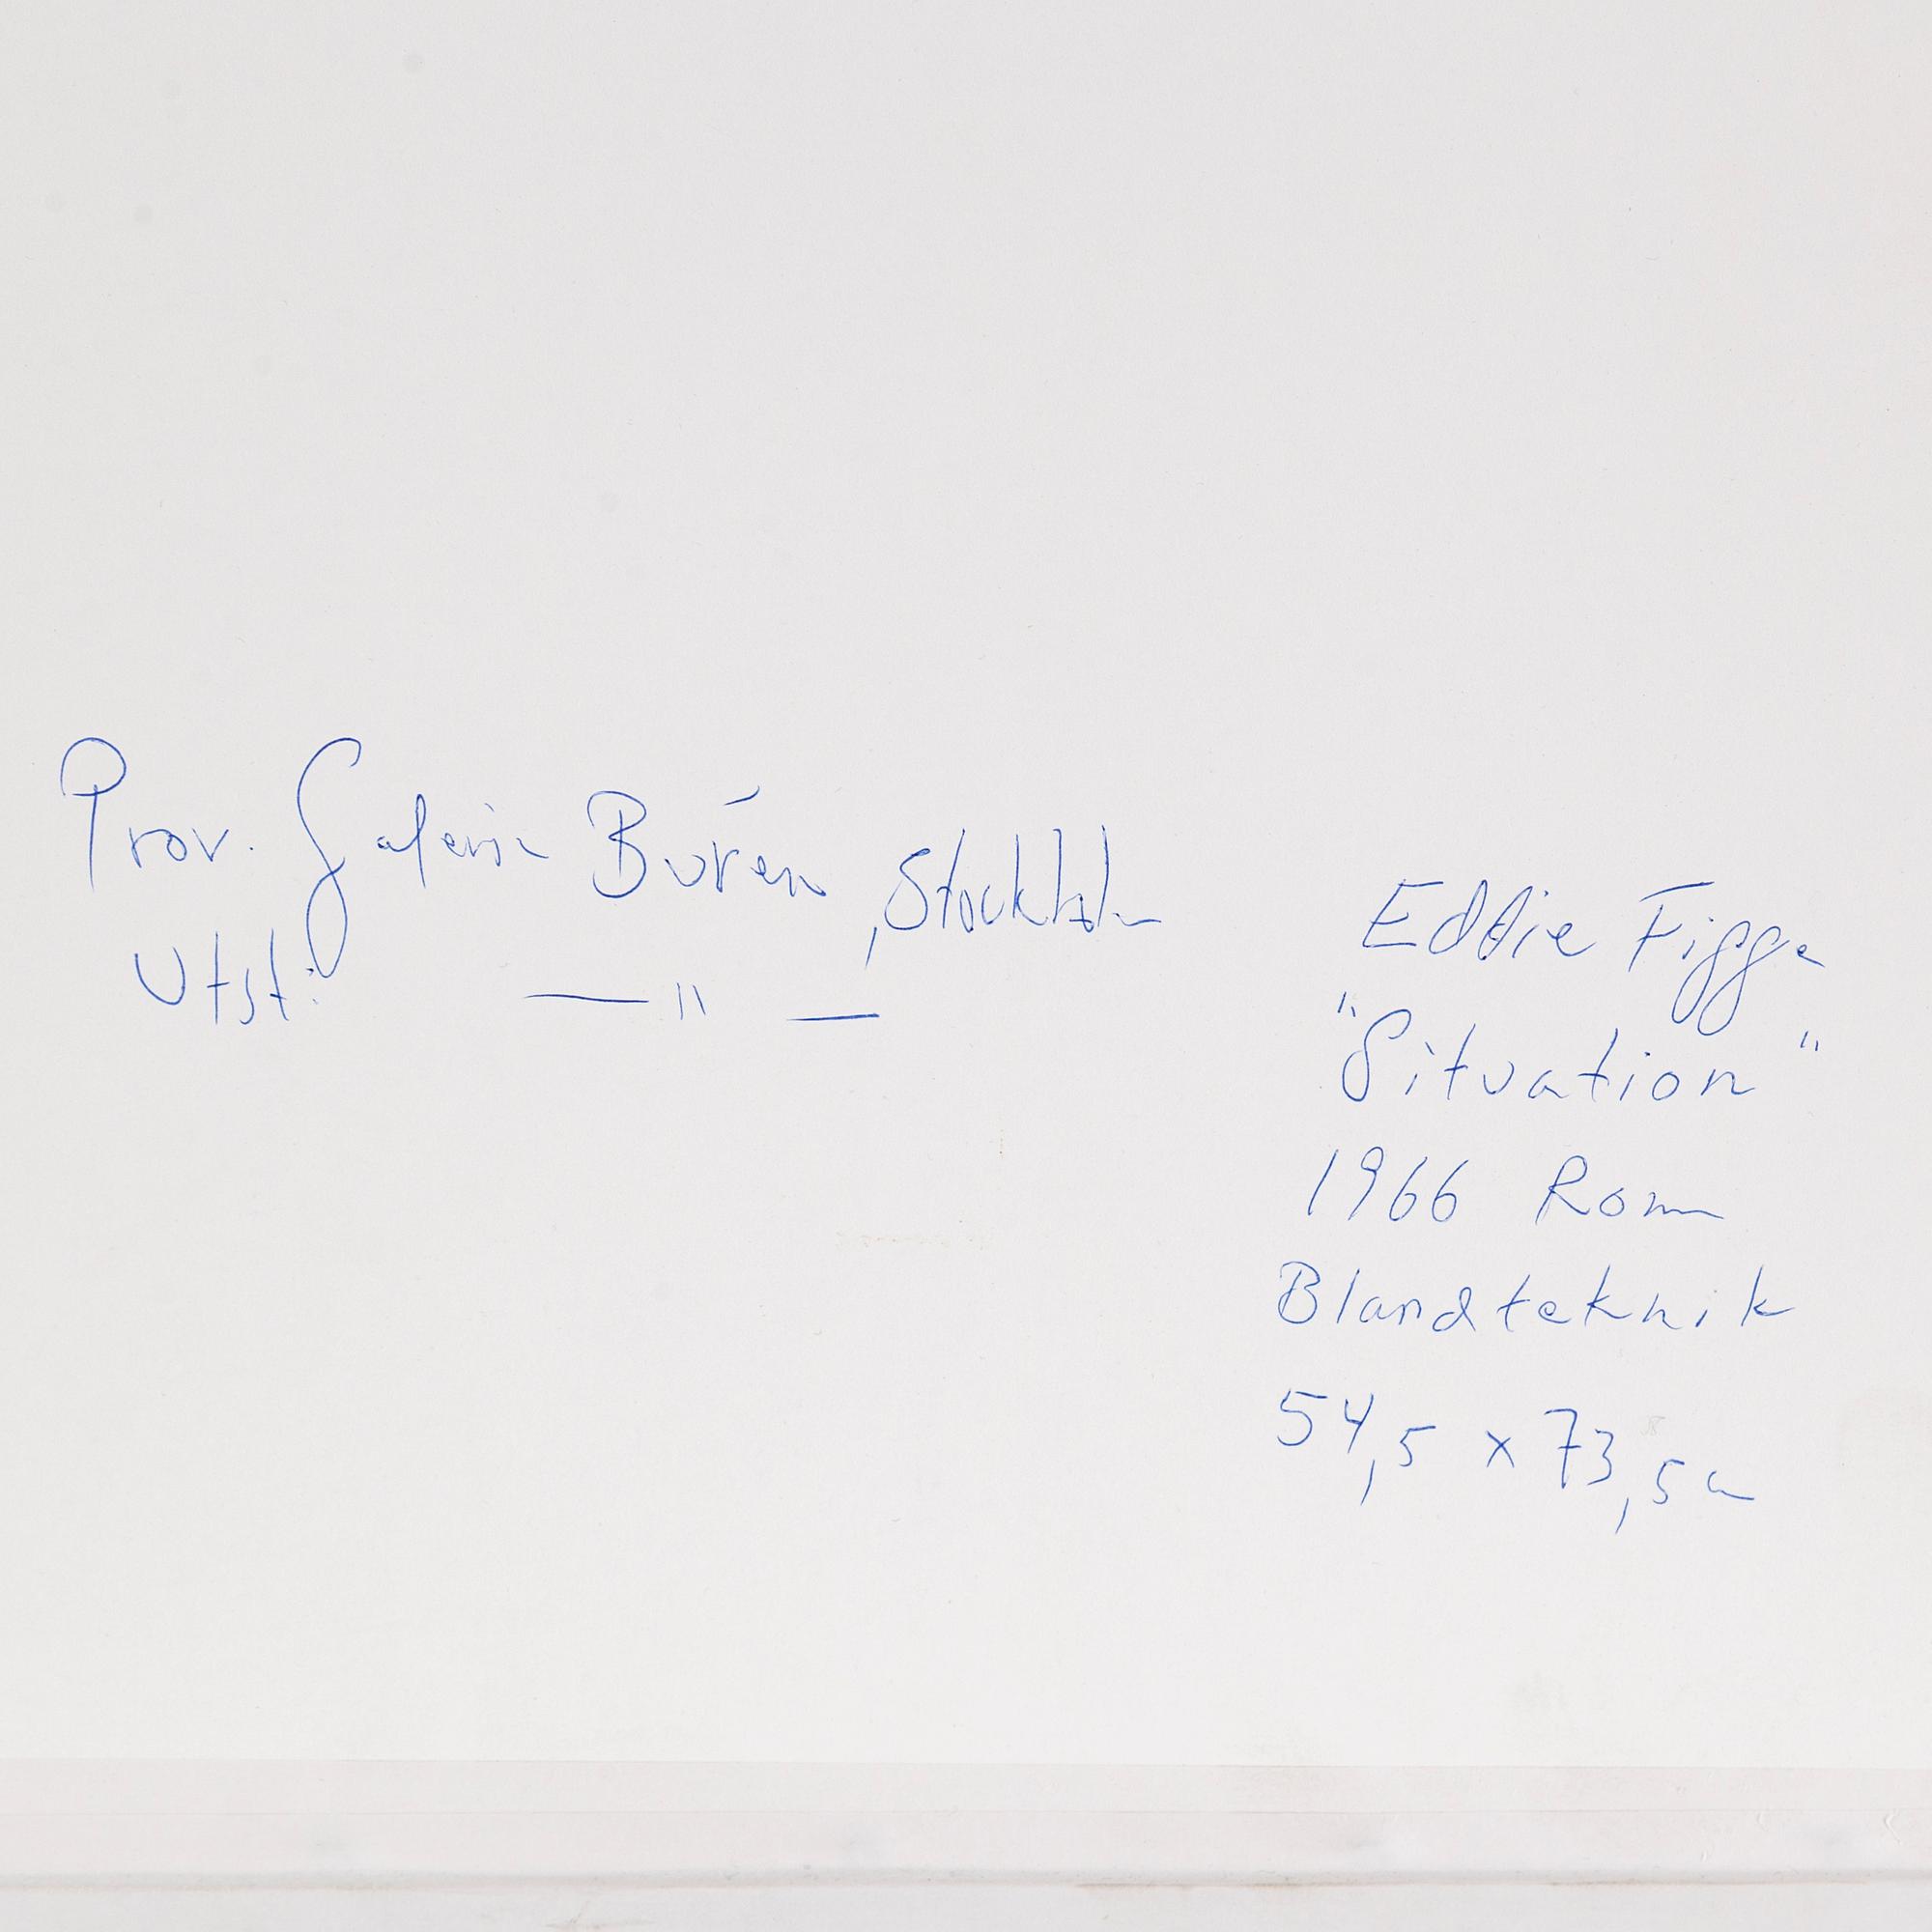 Prov. Galerie Burén, Stockholm
Utst: —"—
Eddie Figge
"Situation"
1966 Rom
Blandteknik
54,5 x 73,5 cm